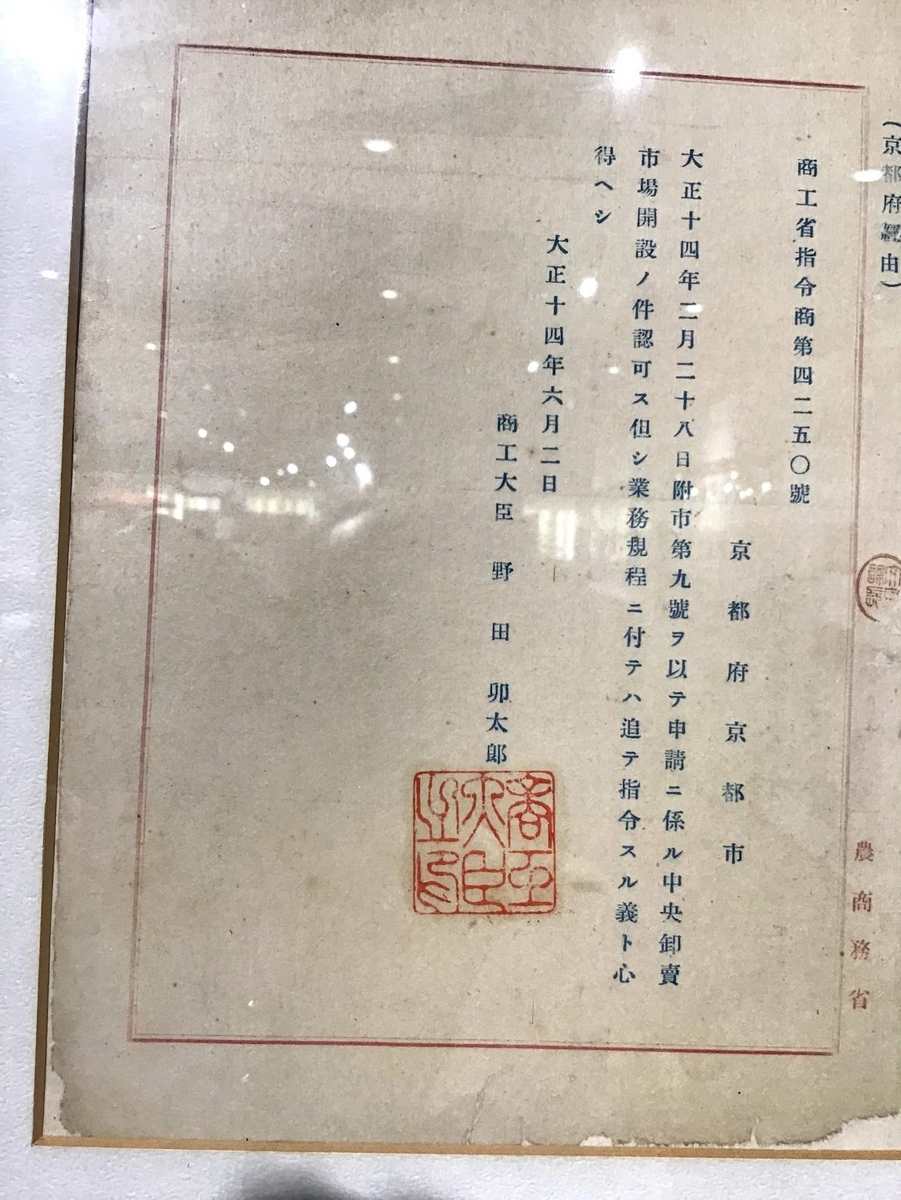 (京都府經由)
商工省指令商第四二五〇號
京都府京都市
大正十四年二月二十八日附市第九號ヲ以テ申請ニ係ル中央卸賣
市場開設ノ件認可ス但シ業務規程ニ付テハ追テ指令スル義ト心
得ヘシ
大正十四年六月二日
商工大臣 野田卯太郎
商工大臣之印
農商務省